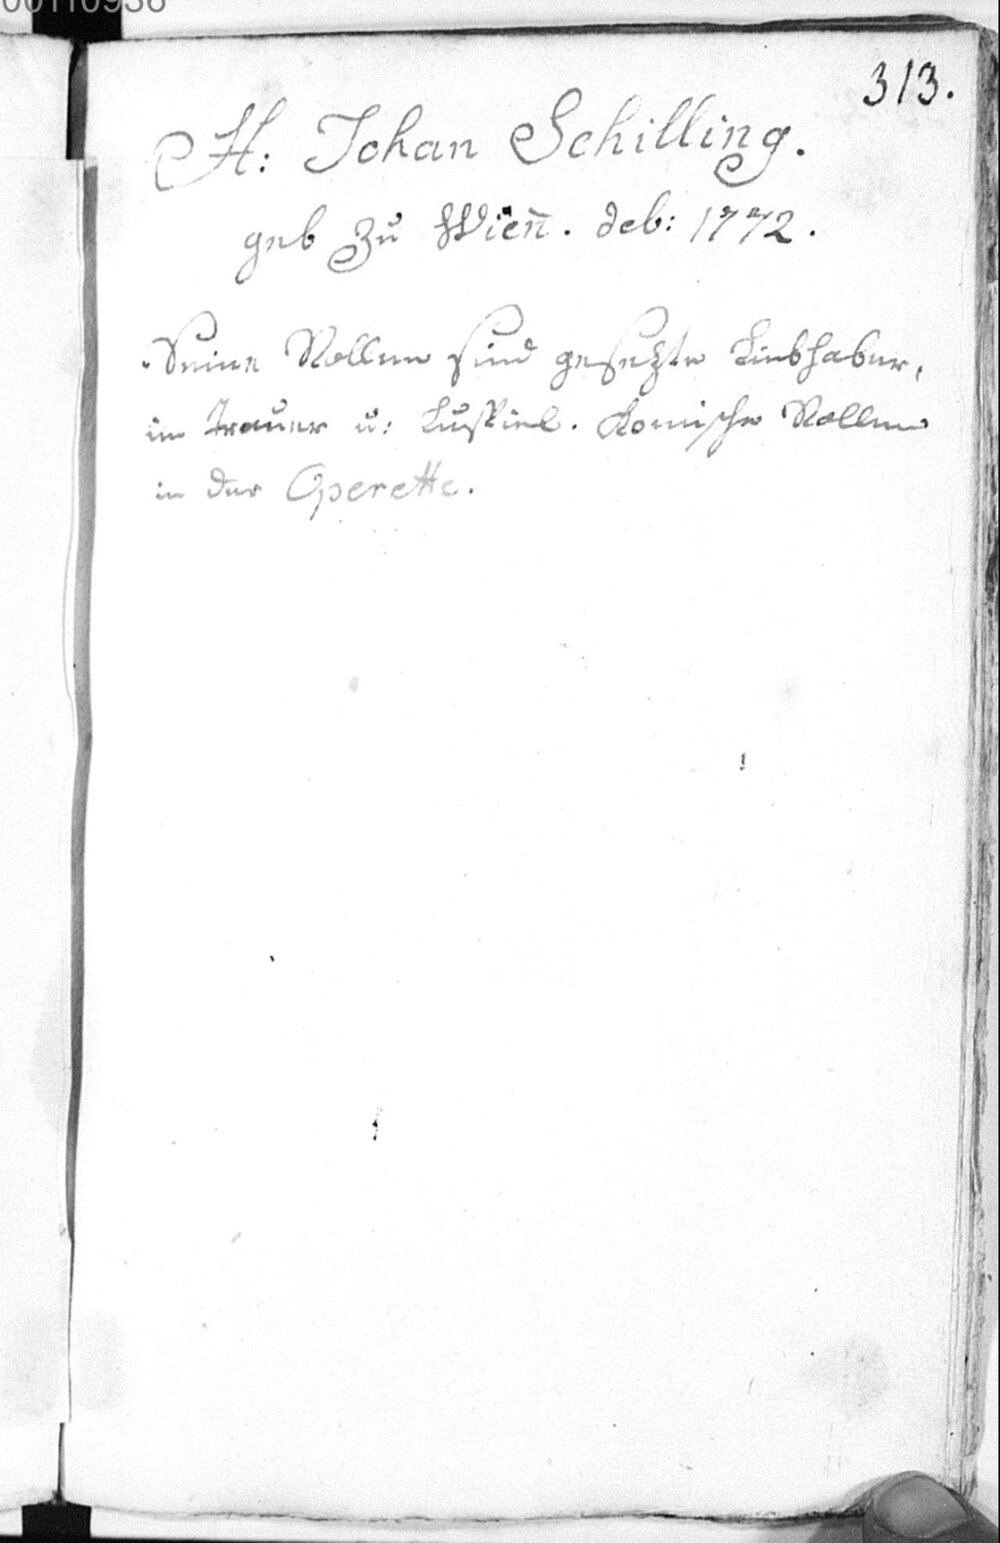 313.
H: Johan Schilling.
geb zu Wien̅. deb: 1772.
Seine Rollen sind gesetzte Liebhaber,
im Trauer u: Lustspiel. Komische Rollen
in der Operette.